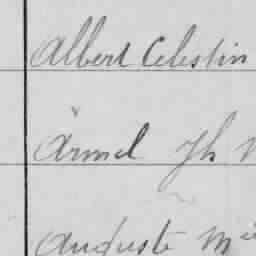 Albert Celestin
Armel Jh
Auguste Mie